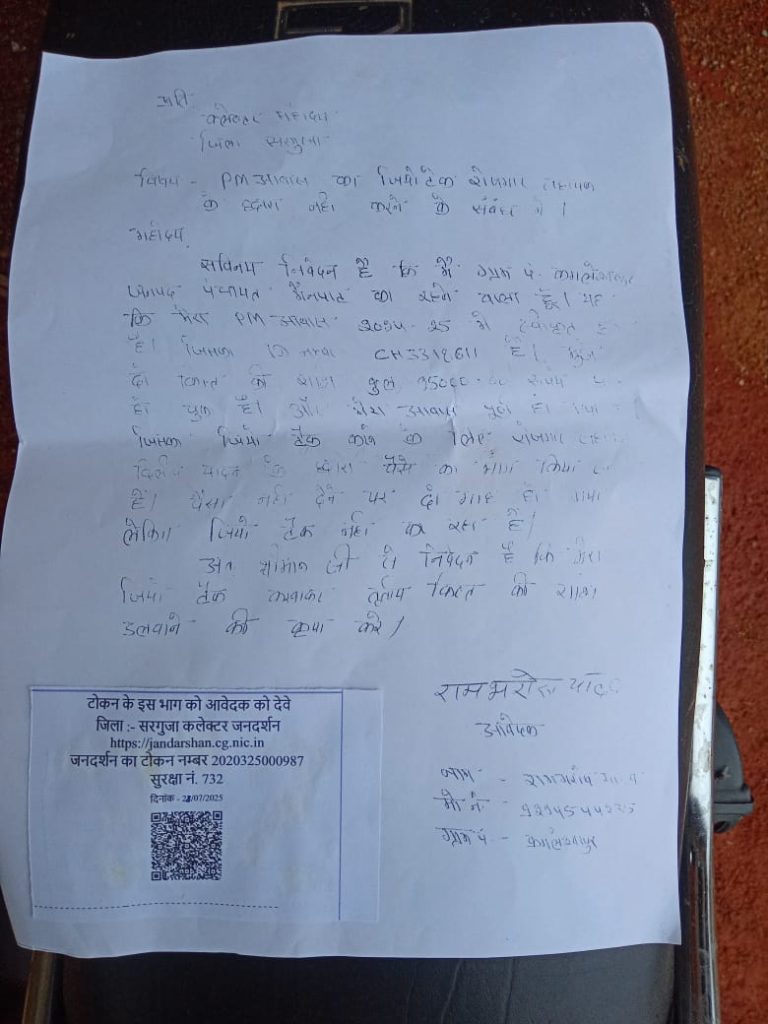 प्रति,
कलेक्टर महोदय
जिला सरगुजा
विषय - PM आवास का जियो टेक रोजगार सहायक
के द्वारा नही करने के संबंध मे।
महोदय,
सविनय निवेदन है कि मै ग्राम पं. कमलेश्वरपुर
जनपद पंचायत मैनपाट का रहने वाला हूँ। यह
कि मेरा PM आवास 2024-25 मे स्वीकृत
है। जिसका नम्बर CH3318611 है। मुझे
दो किस्त की राशि कुल 95000.00 रूपये
हो चुका है। और मेरा आवास पूर्ण हो
जिसका जियो टैक करने के लिए रोजगार
दिलीप यादव के द्वारा पैसे का मांग किया
है। पैसा नही देने पर दो माह हो गया
लेकिन जियो टैक नही कर रहा है।
अतः श्रीमान जी से निवेदन है कि मेरा
जियो टैक करवाकर तृतीय किस्त की राशि
डलवाने की कृपा करे।
रामभरोस यादव
आवेदक
नाम - रामभरोस
मो नं. -
ग्राम पं. - कमलेश्वरपुर
टोकन के इस भाग को आवेदक को देवे
जिला :- सरगुजा कलेक्टर जनदर्शन
https://jandarshan.cg.nic.in
जनदर्शन का टोकन नम्बर 2020325000987
सुरक्षा नं. 732
दिनांक - /07/2025